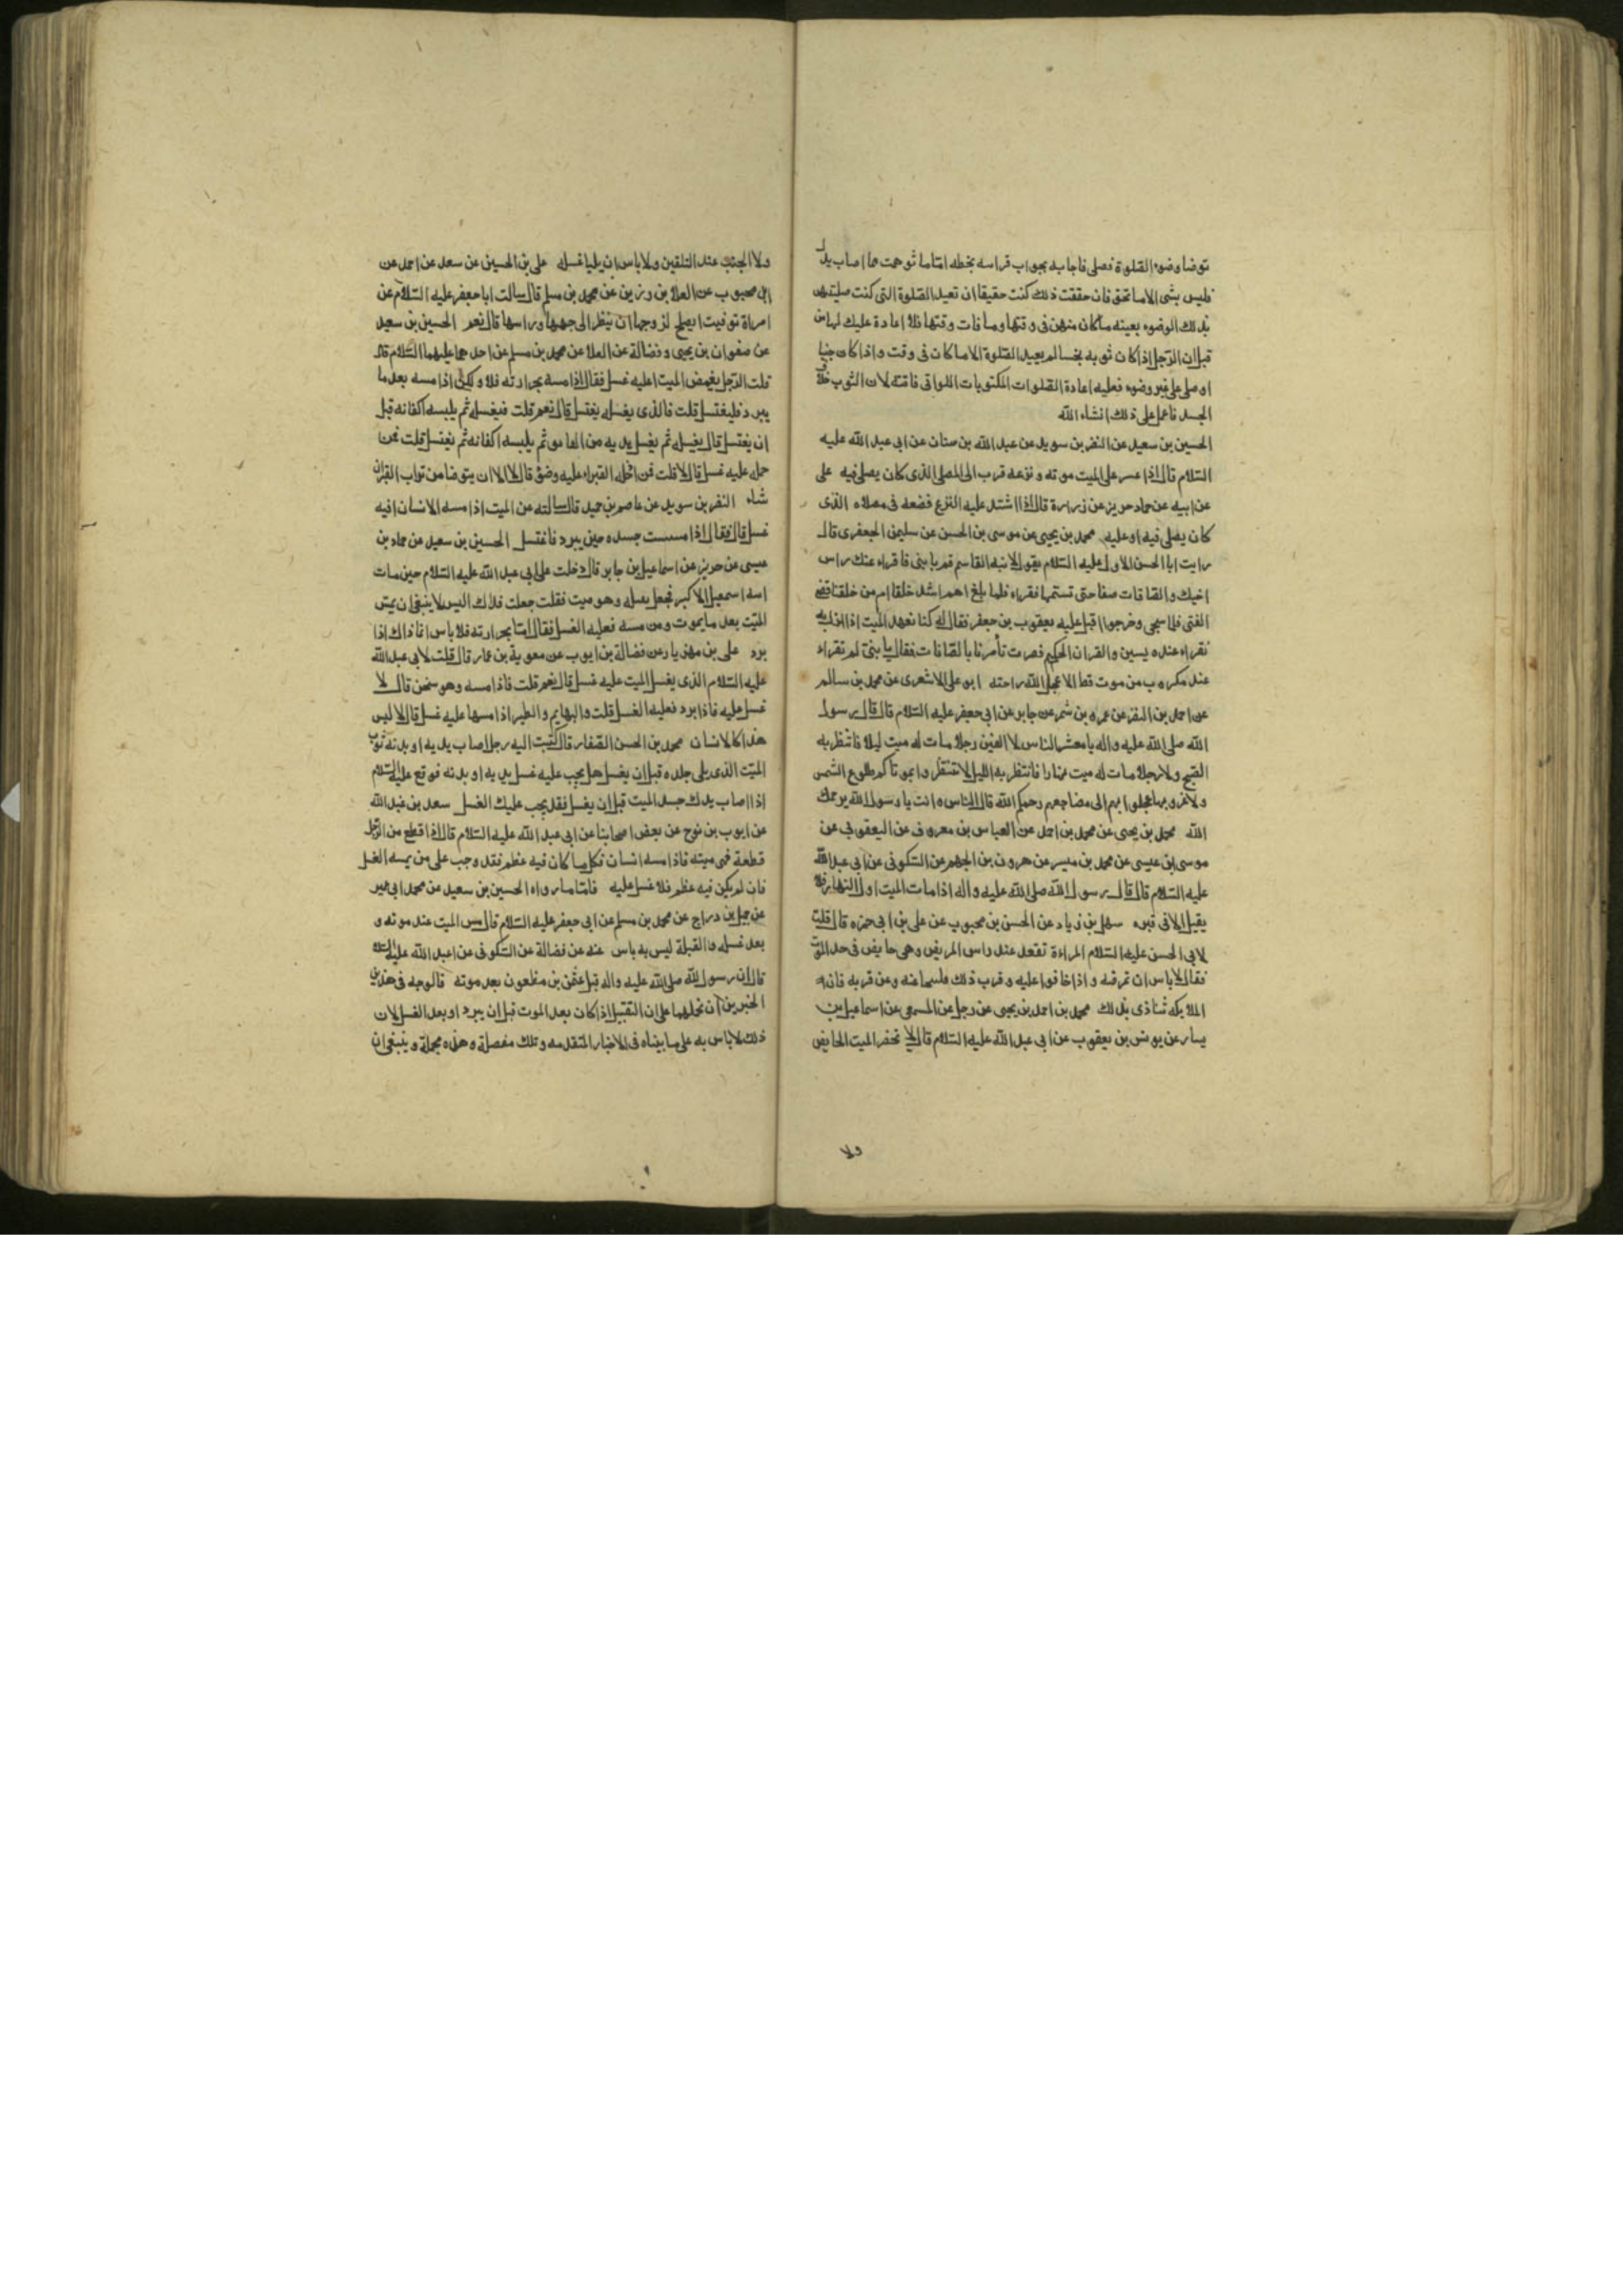 توضا وضوء الصلوة فصلى فاجابه بجواب قراسه بخطه اما ما توهمت مما اصاب يدك
فليس بشى الا ما تحقق فان حققت ذلك كنت حقيقا ان تعيد الصلوة التى كنت صليتهن
بذلك الوضوء بعينه ما كان منهن فى وقتها وما فات وقتها فلا اعادة عليك لها من
قبل ان الرجل اذا كان ثوبه نجسا لم يعيد الصلوة الا ما كان فى وقت واذا كان جنبا
او صلى على غير وضوء فعليه اعادة الصلوات المكتوبات اللواتى فاتته لان الثوب خلاف
الجسد فاعمل على ذلك انشاء الله
الحسين بن سعيد عن النضر بن سويد عن عبد الله بن سنان عن ابى عبد الله عليه
السلام قال اذا عسر على الميت موته ونزعه قرب الى المصلى الذى كان يصلى فيه على
عن ابيه عن حماد حريز عن زرارة قال اذا اشتد عليه النزع فضعه فى مصلاه الذى
كان يصلى فيه او عليه محمد بن يحيى عن موسى بن الحسن عن سليمن الجعفرى قال
رايت ابا الحسن الاول عليه السلام يقول لابنه القاسم قم يا بنى فاقراء عند راس
اخيك والصافات صفا حتى تستتمها فقراء فلما بلغ اهم اشد خلقا ام من خلقنا قضى
الفتى فلما سجى وخرجوا اقبل عليه يعقوب بن جعفر فقال له كنا نعهد الميت اذا نزل به
نقراء عنده يسين والقران الحكيم فصرت تأمرنا بالصافات فقال يا بنى لم تقراء
عند مكروب من موت قط الا عجل الله راحته ابو على الاشعرى عن محمد بن سالم
عن احمد بن النضر عن عمرو بن شمر عن جابر عن ابى جعفر عليه السلام قال قال رسول
الله صلى الله عليه واله يا معشر الناس لا الفين رجلا مات له ميت ليلا فانتظر به
الصبح ولا رجلا مات له ميت نهارا فانتظر به الليل لا تنتظروا بموتاكم طلوع الشمس
ولا غروبها عجلوا بهم الى مضاجعهم رحمكم الله قال الناس وانت يا رسول الله يرحمك
الله محمد بن يحيى عن محمد بن احمد عن العباس بن معروف عن اليعقوبى عن
موسى بن عيسى عن محمد بن ميسر عن هرون بن الجهم عن السكونى عن ابى عبد الله
عليه السلام قال قال رسول الله صلى الله عليه واله اذا مات الميت اول النهار فلا
يقيل الا فى قبره سهل بن زياد عن الحسن بن محبوب عن على بن ابى حمزه قال قلت
لابى الحسن عليه السلام المراءة تقعد عند راس المريض وهى حايض فى حد الموت
فقال لا باس ان تمرضه واذا خافوا عليه وقرب ذلك فلسحا عنه وعن قربه فان
الملايكه تتاذى بذلك محمد بن احمد بن يحيى عن رجل عن المسمعى عن اسماعيل بن
يسار عن يونس بن يعقوب عن ابى عبد الله عليه السلام قال لا تحضر الميت الحايض
ولا
ولا الجنب عند التلقين ولا باس ان يليا غسله على بن الحسين عن سعد عن احمد عن
ابن محبوب عن العلا بن رزين عن محمد بن مسلم قال سالت ابا جعفر عليه السلام عن
امراة توفيت ايصلح لزوجها ان ينظر الى وجهها وراسها قال نعم الحسين بن سعيد
عن صفوان بن يحيى وفضالة عن العلا عن محمد بن مسلم عن احدهما عليهما السلام قال
قلت الرجل يغمض الميت اعليه غسل فقال اذا مسه بحرارته فلا ولكن اذا مسه بعد ما
يبرد فليغتسل قلت فالذى يغسله يغتسل قال نعم قلت فيغسله ثم يلبسه اكفانه قبل
ان يغتسل قال يغسله ثم يغسل يديه من العاتق ثم يلبسه اكفانه ثم يغتسل قلت فمن
حمله عليه غسل قال لا قلت فمن ادخله القبر اعليه وضؤ قال لا الا ان يتوضا من تراب القبر ان
شاء النضر بن سويد عن عاصم بن حميد قال سالته عن الميت اذا مسه الانسان افيه
غسل قال فقال اذا مسست جسده حين يبرد فاغتسل الحسين بن سعيد عن حماد بن
عيسى عن حريز عن اسماعيل بن جابر قال دخلت على ابى عبد الله عليه السلام حين مات
ابنه اسمعيل الاكبر فجعل يقبله وهو ميت فقلت جعلت فداك اليس لا ينبغى ان يمس
الميت بعد ما يموت ومن مسه فعليه الغسل فقال اما بحرارته فلا باس انما ذاك اذا
برد على بن مهزيار عن فضالة بن ايوب عن معوية بن عمار قال قلت لابى عبد الله
عليه السلام الذى يغسل الميت عليه غسل قال نعم قلت فاذا مسه وهو سخن قال لا
غسل عليه فاذا برد فعليه الغسل قلت والبهايم والطير اذا مسها عليه غسل قال لا ليس
هذا كالانسان محمد بن الحسن الصفار قال كتبت اليه رجل اصاب يديه او بدنه ثوب
الميت الذى يلى جلده قبل ان يغسل هل يجب عليه غسل يديه او بدنه فوقع عليه السلام
اذا اصاب يدك جسد الميت قبل ان يغسل فقد يجب عليك الغسل سعد بن عبد الله
عن ايوب بن نوح عن بعض اصحابنا عن ابى عبد الله عليه السلام قال اذا قطع من الرجل
قطعة فهى ميته فاذا مسه انسان فكلما كان فيه عظم فقد وجب على من يمسه الغسل
فان لم يكن فيه عظم فلا غسل عليه فاما ما رواه الحسين بن سعيد عن محمد ابى عمير
عن جميل بن دراج عن محمد بن مسلم عن ابى جعفر عليه السلام قال مس الميت عند موته و
بعد غسله والقبلة ليس به باس عنه عن فضالة عن السكونى عن ابى عبد الله عليه السلام
قال ان رسول الله صلى الله عليه واله قبل عثمن بن مظعون بعد موته فالوجه فى هذين
الخبرين ان نحملهما على ان التقبيل اذا كان بعد الموت قبل ان يبرد او بعد الغسل لان
ذلك لا باس به على ما بيناه فى الاخبار المتقدمه وتلك مفصلة وهذه مجملة وينبغى ان